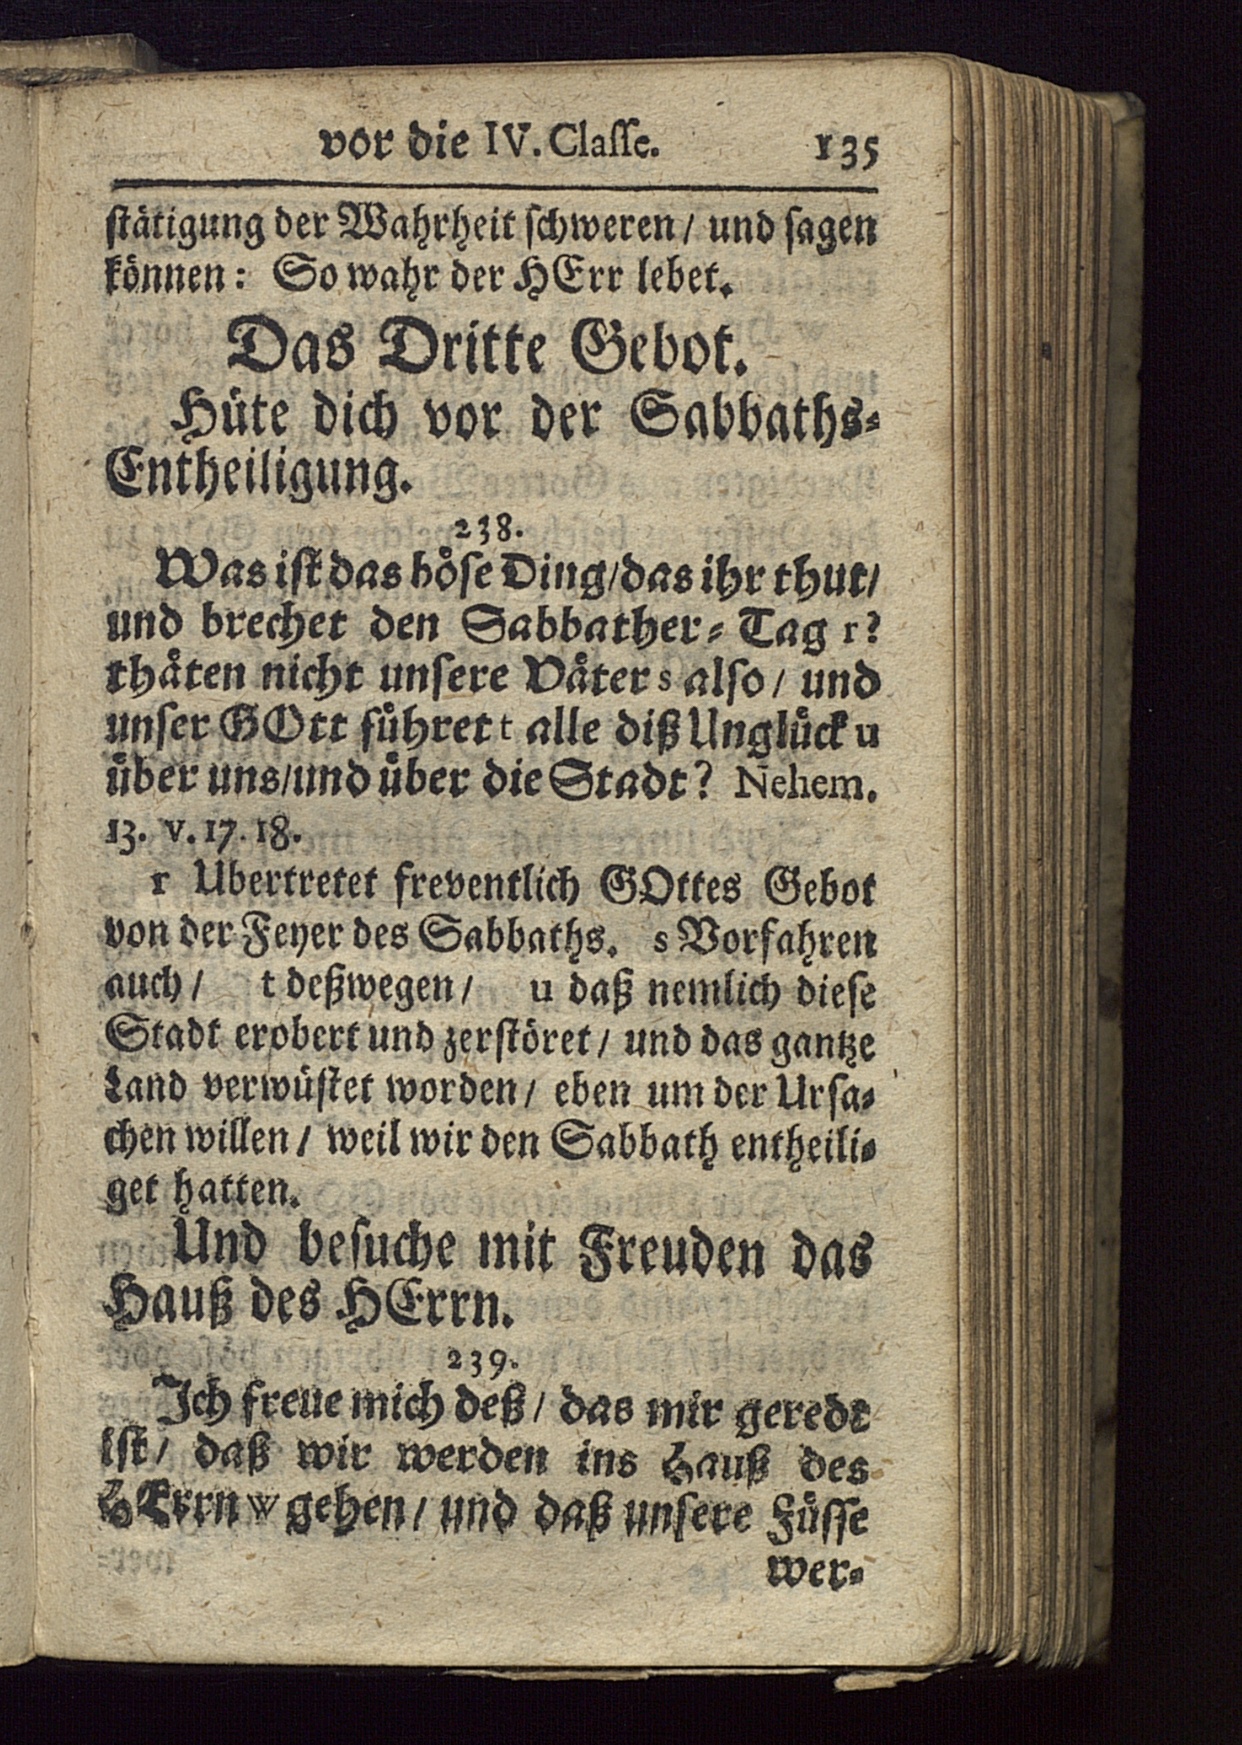 vor die IV. Classe. 135
stätigung der Wahrheit schweren / und sagen
können: So wahr der HErr lebet.
Das Dritte Gebot.
Hüte dich vor der Sabbaths-
Entheiligung.
238.
Was ist das böse Ding / das ihr thut /
und brechet den Sabbather-Tag r?
thäten nicht unsere Väter s also / und
unser GOtt führet t alle diß Unglück u
über uns / und über die Stadt? Nehem.
13. v. 17. 18.
r Ubertretet freventlich GOttes Gebot
von der Feyer des Sabbaths. s Vorfahren
auch / t deßwegen / u daß nemlich diese
Stadt erobert und zerstöret / und das gantze
Land verwüstet worden / eben um der Ursa-
chen willen / weil wir den Sabbath entheili-
get hatten.
Und besuche mit Freuden das
Hauß des HErrn.
239.
Ich freue mich deß / das mir geredt
ist / daß wir werden ins Hauß des
HErrn w gehen / und daß unsere Füsse
wer-